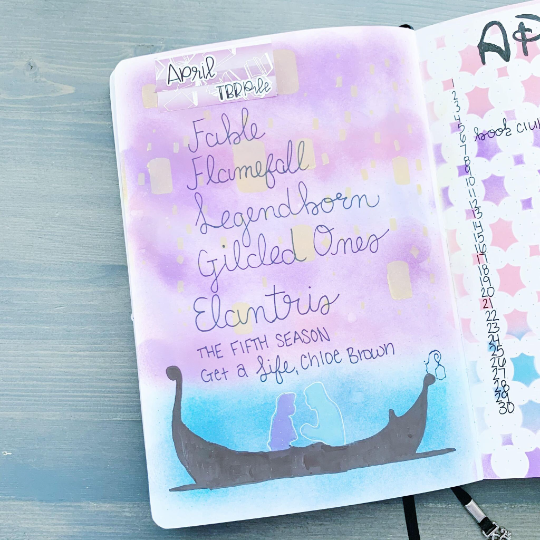 April
TBR Pile
Fable
Flamefall
Legendborn
Gilded Ones
Elantris
THE FIFTH SEASON
Get a Life, Chloe Brown
AP
1
2
3
4
5
6 book club
7
8
9
10
11
12
13
14
15
16
17
18
19
20
21
22
23
24
25
26
27
28
29
30